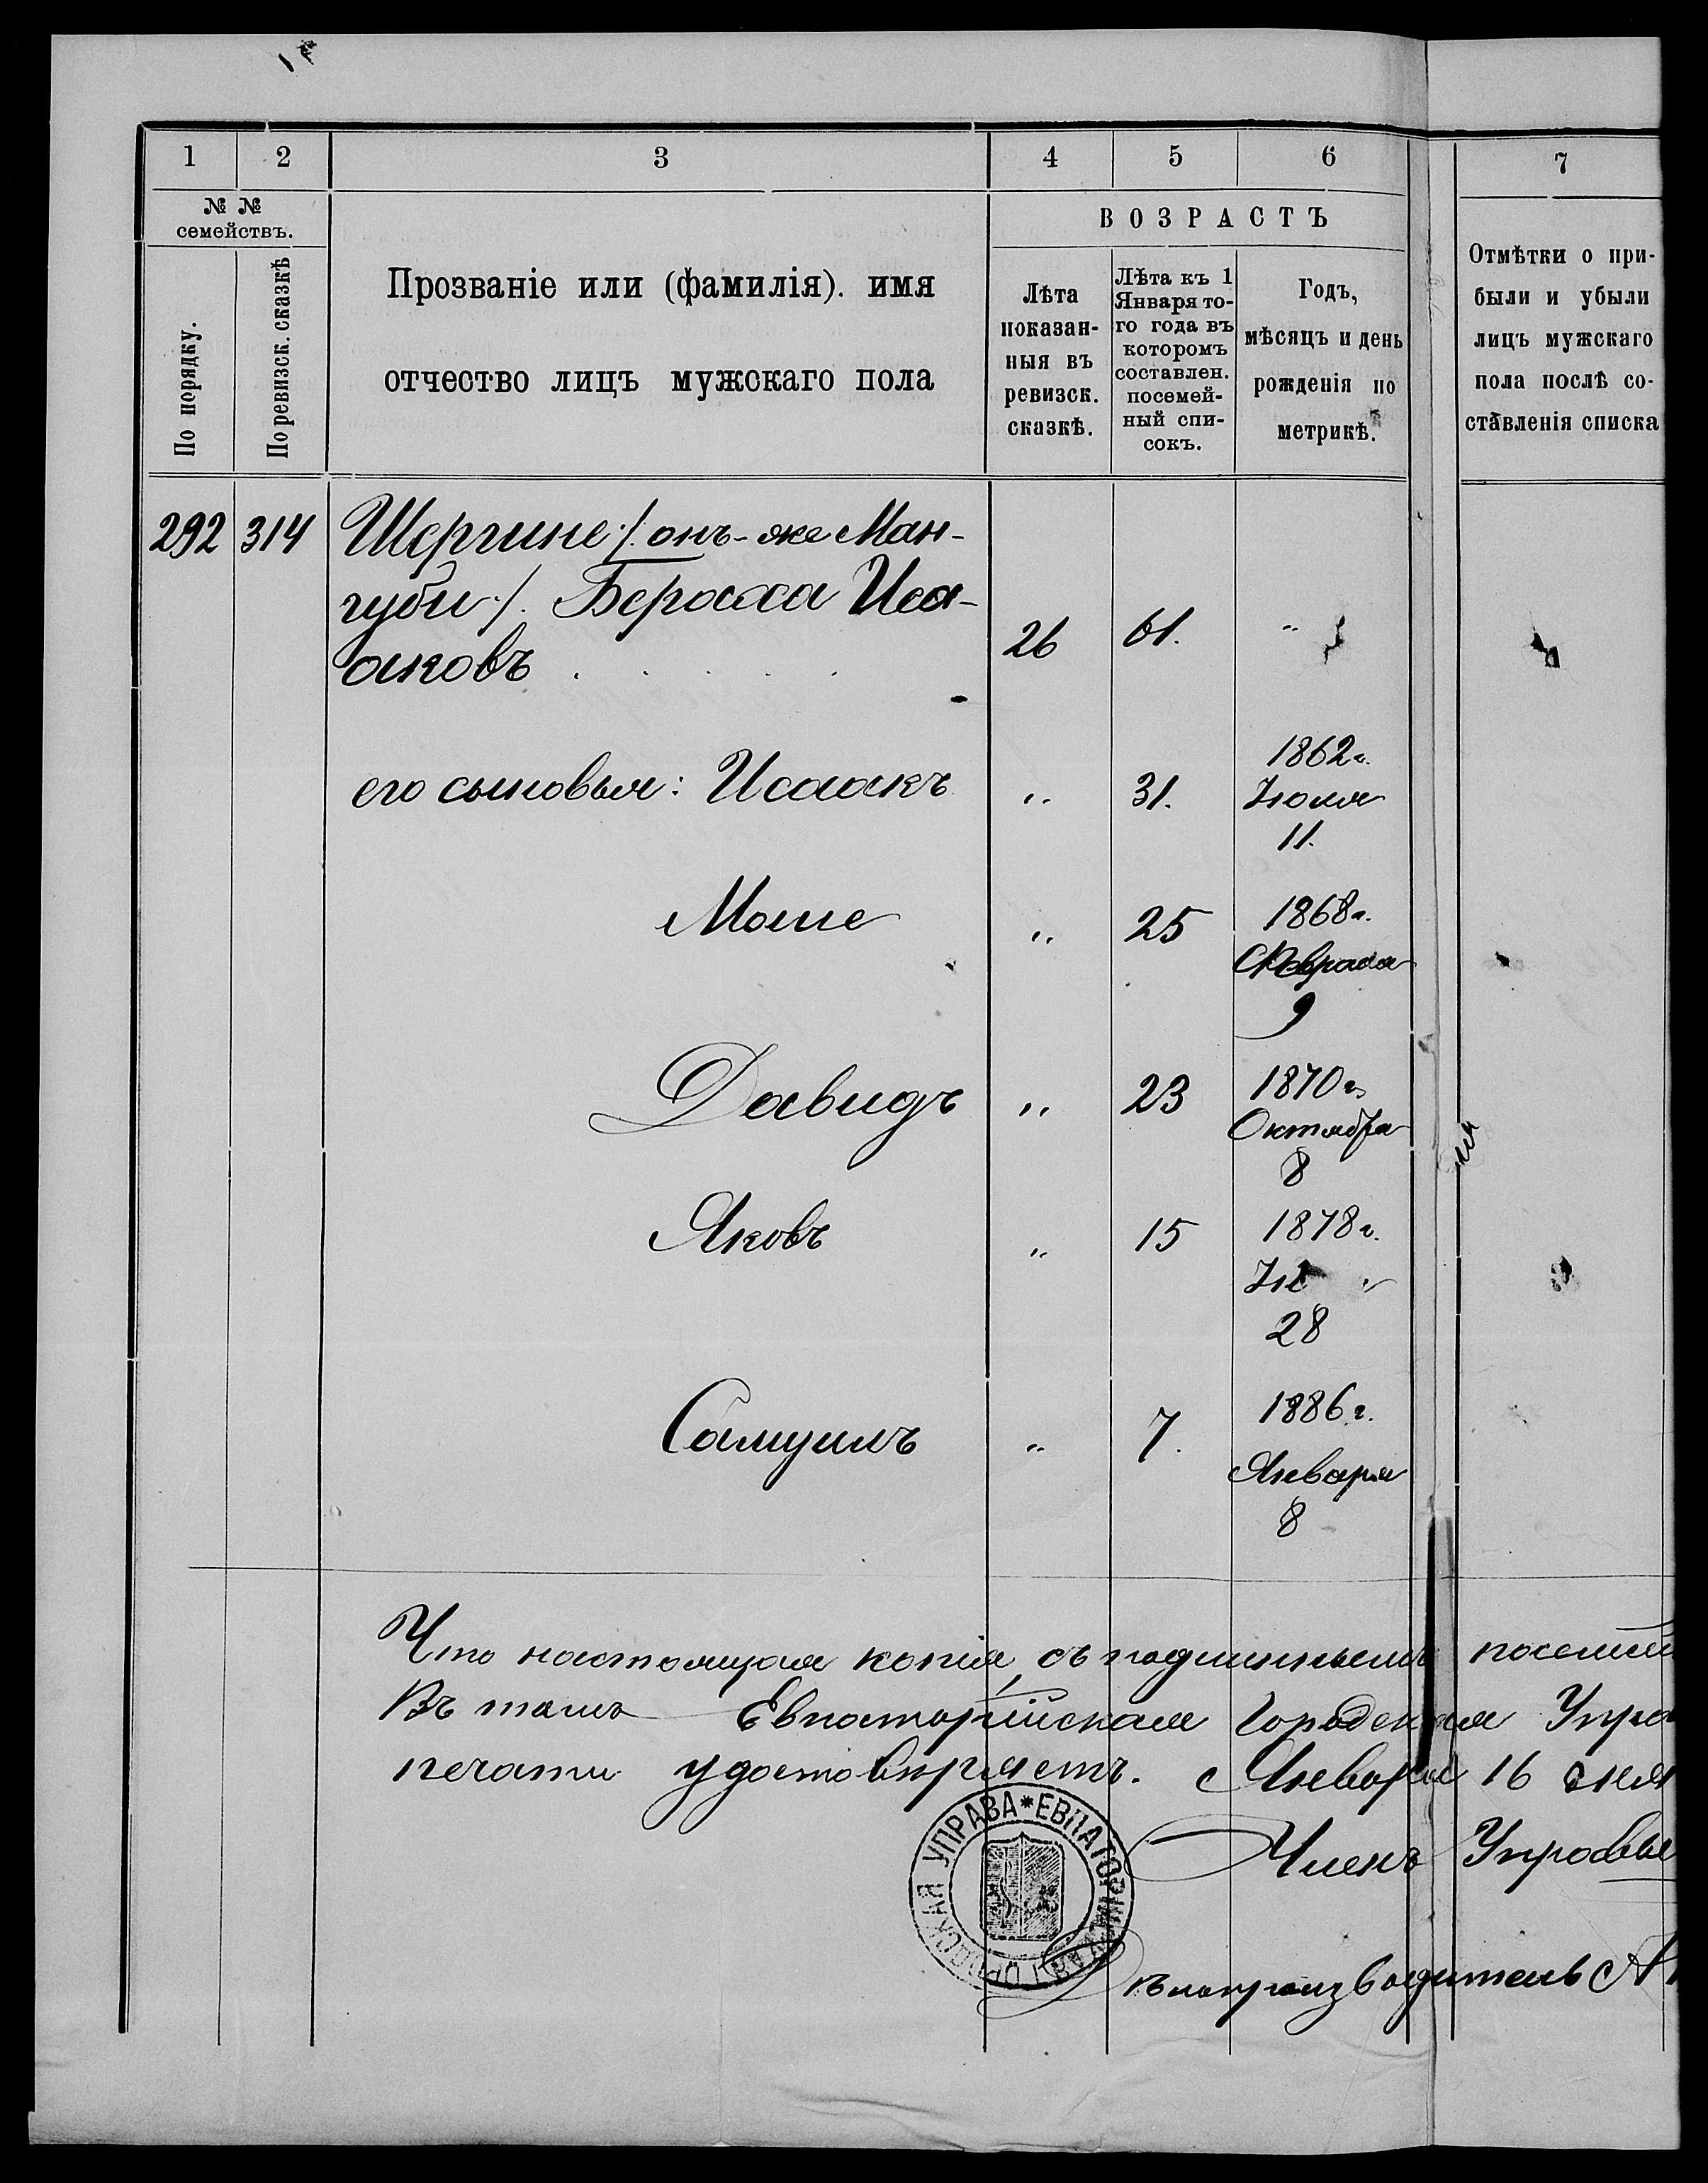 1 2 3 4 5 6 7
№ №
семействъ.
По порядку.
По ревизск. сказкѣ
Прозваніе или (фамилія). имя
отчество лицъ мужскаго пола
ВОЗРАСТЪ
Лѣта
показан-
ныя въ
ревизск.
сказкѣ.
Лѣта къ 1
Января то-
го года въ
которомъ
составлен.
посемей-
ный спи-
сокъ.
Годъ,
мѣсяцъ и день
рожденія по
метрикѣ.
Отмѣтки о при-
были и убыли
лицъ мужскаго
пола послѣ со-
ставленія списка
292 314 Шергине /. онъ-же Ман-
губи ./. Бераха Иса-
аковъ . . . . . 26 61. "
его сыновья: Исаакъ " 31. 1862 г.
Іюля
11.
Моше " 25 1868 г.
Февраля
9
Давидъ " 23 1870 г.
Октября
8
Яковъ " 15 1878 г.
28
Самуилъ " 7. 1886 г.
Января
8
Что настоящая копія съ подлиннымъ посемей
Въ томъ Евпаторійская Городская Упра
печати удостовѣряетъ. Января 16 дня
Членъ Управы
УПРАВА * ЕВПАТОРІЙСКАЯ ГОРОДСКАЯ
Дѣлопроизводитель